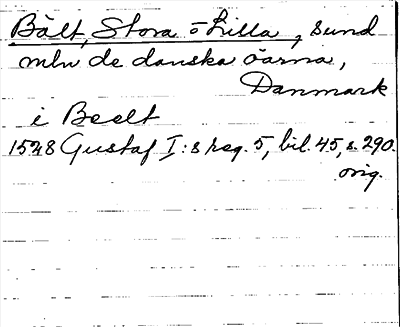 Bält, Stora o Lilla, sund
mln de danska öarna,
Danmark
i Beelt
1528 Gustaf I:s reg. 5, bil. 45, s. 290.
orig.